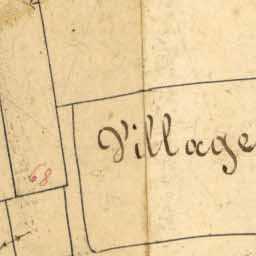 Village
68